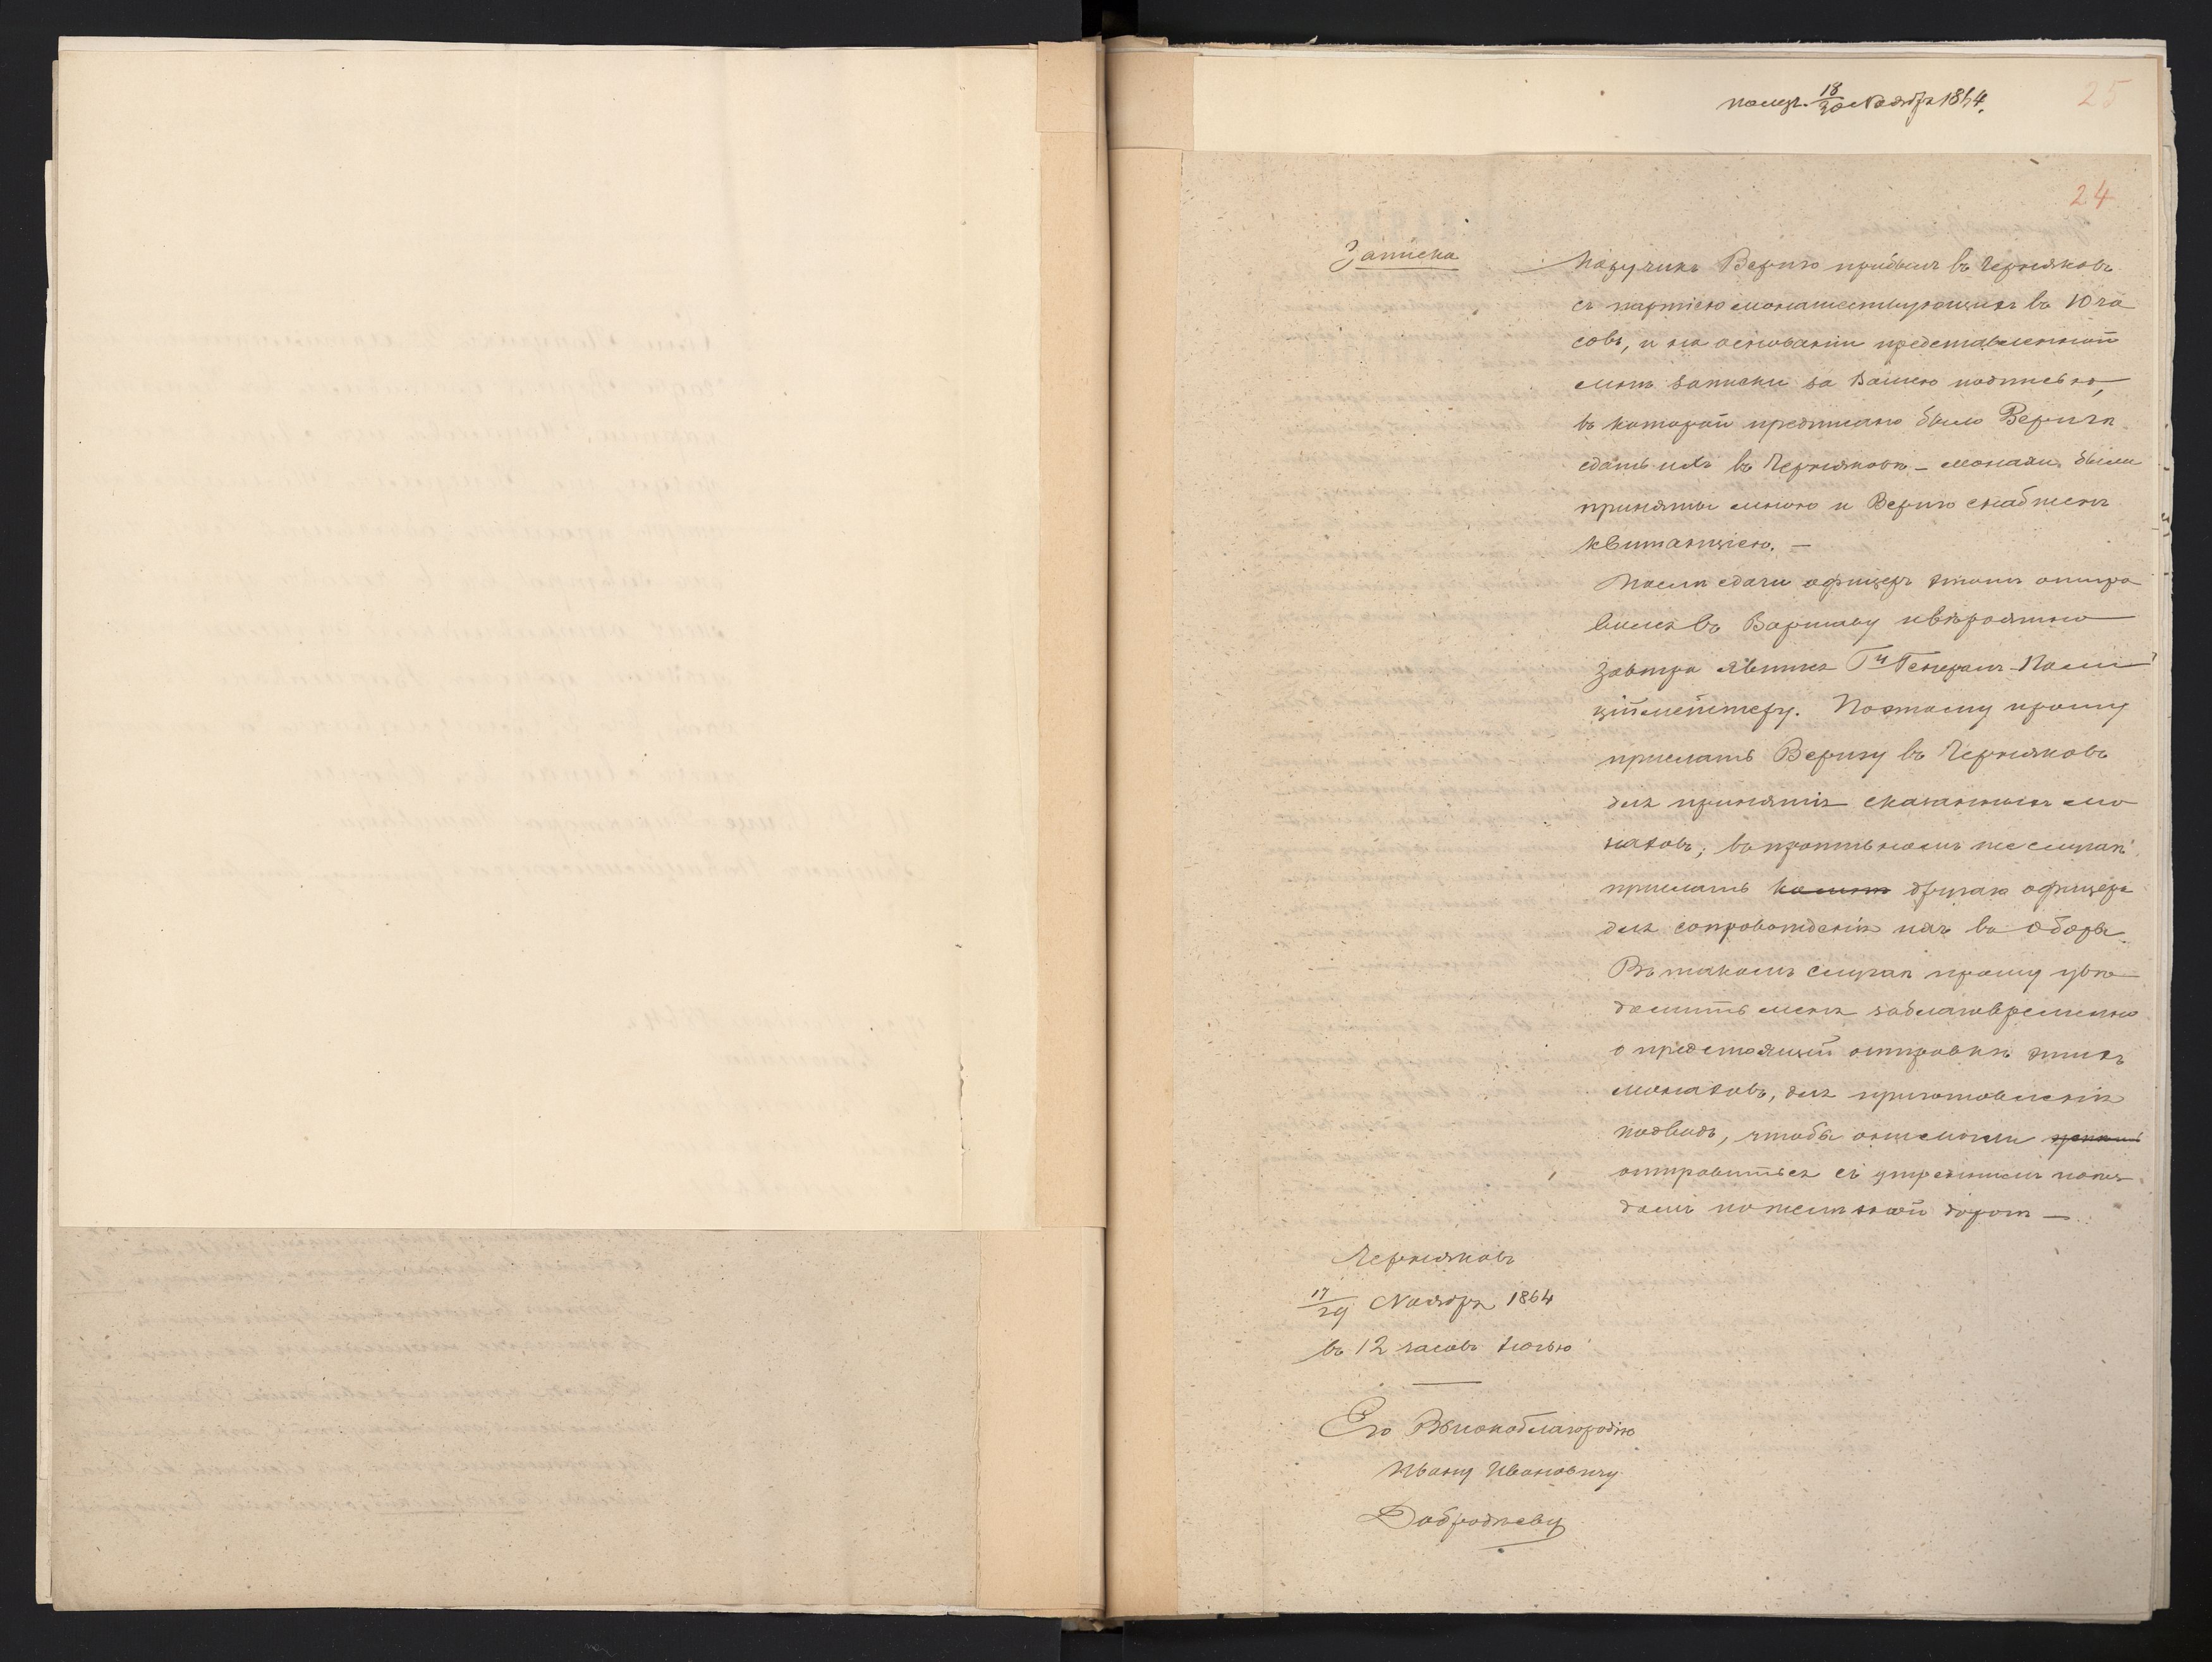 получ. 18/30 Ноября 1864.
25
24
Записка
Поручикъ Вериго прибылъ въ Черняковъ
съ партіею монашествующихъ въ 10 ча
совъ, и на основаніи представленной
мнѣ записки за Вашею подписью,
въ которой предписано было Веригѣ
сдать ихъ въ Черняковѣ – монахи были
приняты мною и Вериго снабженъ
квитанціею. —
Послѣ сдачи офицеръ этотъ отпра
вился въ Варшаву и вѣроятно
завтра явится Гну Генералъ-Поли
ціймейстеру. Поэтому прошу
прислать Веригу въ Черняковъ
для принятія сказанныхъ мо
наховъ; въ противномъ же случаѣ
прислать другаго офицера
для сопровожденія ихъ въ Оборы.
Въ такомъ случаѣ прошу увѣ
домить меня заблаговременно
о предстоящей отправкѣ этихъ
монаховъ, для приготовленія
подводъ, чтобы они могли
отправиться съ утреннимъ поѣз
домъ по желѣзной дорогѣ —
Черняковъ
17/29 Ноября 1864
въ 12 часовъ ночью
Его Высокоблагородію
Ивану Ивановичу
Добродѣеву